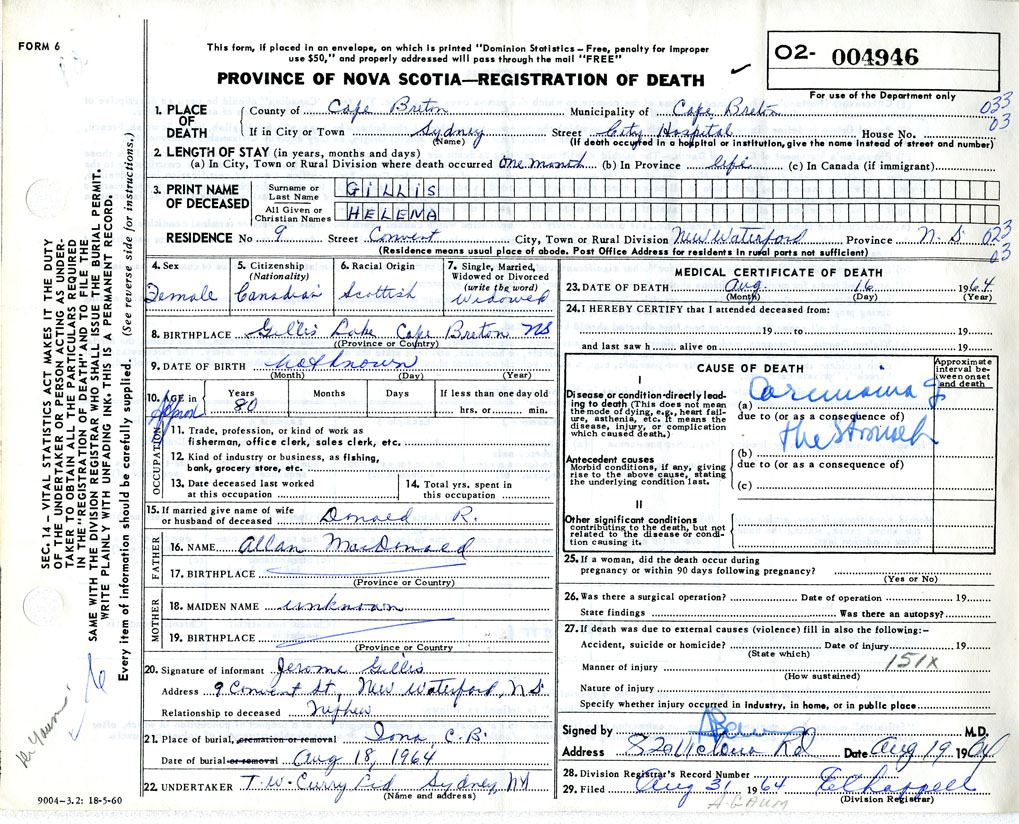 FORM 6
This form, if placed in an envelope, on which is printed "Dominion Statistics – Free, penalty for improper
use $50," and properly addressed will pass through the mail "FREE"
PROVINCE OF NOVA SCOTIA—REGISTRATION OF DEATH
O2- 004946
For use of the Department only
1. PLACE OF DEATH County of Cape Breton Municipality of Cape Breton 033
If in City or Town Sydney Street City Hospital House No. 03
(Name) (If death occurred in a hospital or institution, give the name instead of street and number)
2. LENGTH OF STAY (in years, months and days)
(a) In City, Town or Rural Division where death occurred One month (b) In Province life (c) In Canada (if immigrant)
3. PRINT NAME OF DECEASED
Surname or Last Name GILLIS
All Given or Christian Names HELENA
RESIDENCE No 9 Street Convent City, Town or Rural Division New Waterford Province N.S 023
03
(Residence means usual place of abode. Post Office Address for residents in rural parts not sufficient)
4. Sex Female
5. Citizenship (Nationality) Canadian
6. Racial Origin Scottish
7. Single, Married, Widowed or Divorced (write the word) Widowed
8. BIRTHPLACE Gillis Lake Cape Breton NS
(Province or Country)
9. DATE OF BIRTH not known
(Month) (Day) (Year)
10. AGE in Years Months Days If less than one day old
Approx 80 hrs. or min.
OCCUPATION
11. Trade, profession, or kind of work as
fisherman, office clerk, sales clerk, etc.
12. Kind of industry or business, as fishing,
bank, grocery store, etc.
13. Date deceased last worked
at this occupation
14. Total yrs. spent in
this occupation
15. If married give name of wife
or husband of deceased Donald R.
FATHER
16. NAME Allan MacDonald
17. BIRTHPLACE
(Province or Country)
MOTHER
18. MAIDEN NAME unknown
19. BIRTHPLACE
(Province or Country
20. Signature of informant Jerome Gillis
Address 9 Convent St, New Waterford, N.S
Relationship to deceased Nephew
21. Place of burial, cremation or removal Iona C.B.
Date of burial or removal Aug 18, 1964
22. UNDERTAKER T.W. Curry Ltd Sydney, NS
(Name and address)
MEDICAL CERTIFICATE OF DEATH
23. DATE OF DEATH Aug 16 1964
(Month) (Day) (Year)
24. I HEREBY CERTIFY that I attended deceased from:
19 to 19
and last saw h alive on 19
CAUSE OF DEATH
Approximate interval between onset and death
I
Disease or condition directly leading to death (This does not mean
the mode of dying, e.g., heart failure, asthenia, etc. It means the
disease, injury, or complication
which caused death.)
(a) Carcinoma of
due to (or as a consequence of)
the Stomach
Antecedent causes
Morbid conditions, if any, giving
rise to the above cause, stating
the underlying condition last.
(b)
due to (or as a consequence of)
(c)
II
Other significant conditions
contributing to the death, but not
related to the disease or condition causing it.
25. If a woman, did the death occur during
pregnancy or within 90 days following pregnancy?
(Yes or No)
26. Was there a surgical operation? Date of operation 19
State findings Was there an autopsy?
27. If death was due to external causes (violence) fill in also the following:–
Accident, suicide or homicide? Date of injury 19
(State which)
151X
Manner of injury
(How sustained)
Nature of injury
Specify whether injury occurred in industry, in home, or in public place
Signed by M.D.
Address 82 Victoria Rd Date Aug 19 1964
28. Division Registrar's Record Number
29. Filed Aug 31 1964
(Division Registrar)
SEC. 14 – VITAL STATISTICS ACT MAKES IT THE DUTY
OF THE UNDERTAKER OR PERSON ACTING AS UNDERTAKER TO OBTAIN ALL THE PARTICULARS REQUIRED
IN THE "REGISTRATION OF DEATH" AND TO FILE THE
SAME WITH THE DIVISION REGISTRAR WHO SHALL ISSUE THE BURIAL PERMIT.
WRITE PLAINLY WITH UNFADING INK. THIS IS A PERMANENT RECORD.
Every item of information should be carefully supplied. (See reverse side for instructions.)
9004-3.2: 18-5-60